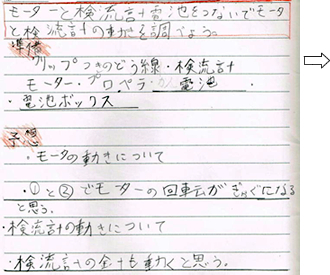 モーターと検流計と電池をつないでモータ
と検流計の動きを調べよう。
準備
クリップつきのどう線・検流計
モーター・プロペラ 電池
・電池ボックス
予想
・モータの動きについて
・①と②でモーターの回転がぎゃくになる
と思う。
・検流計の動きについて
・検流計の金十も動くと思う。